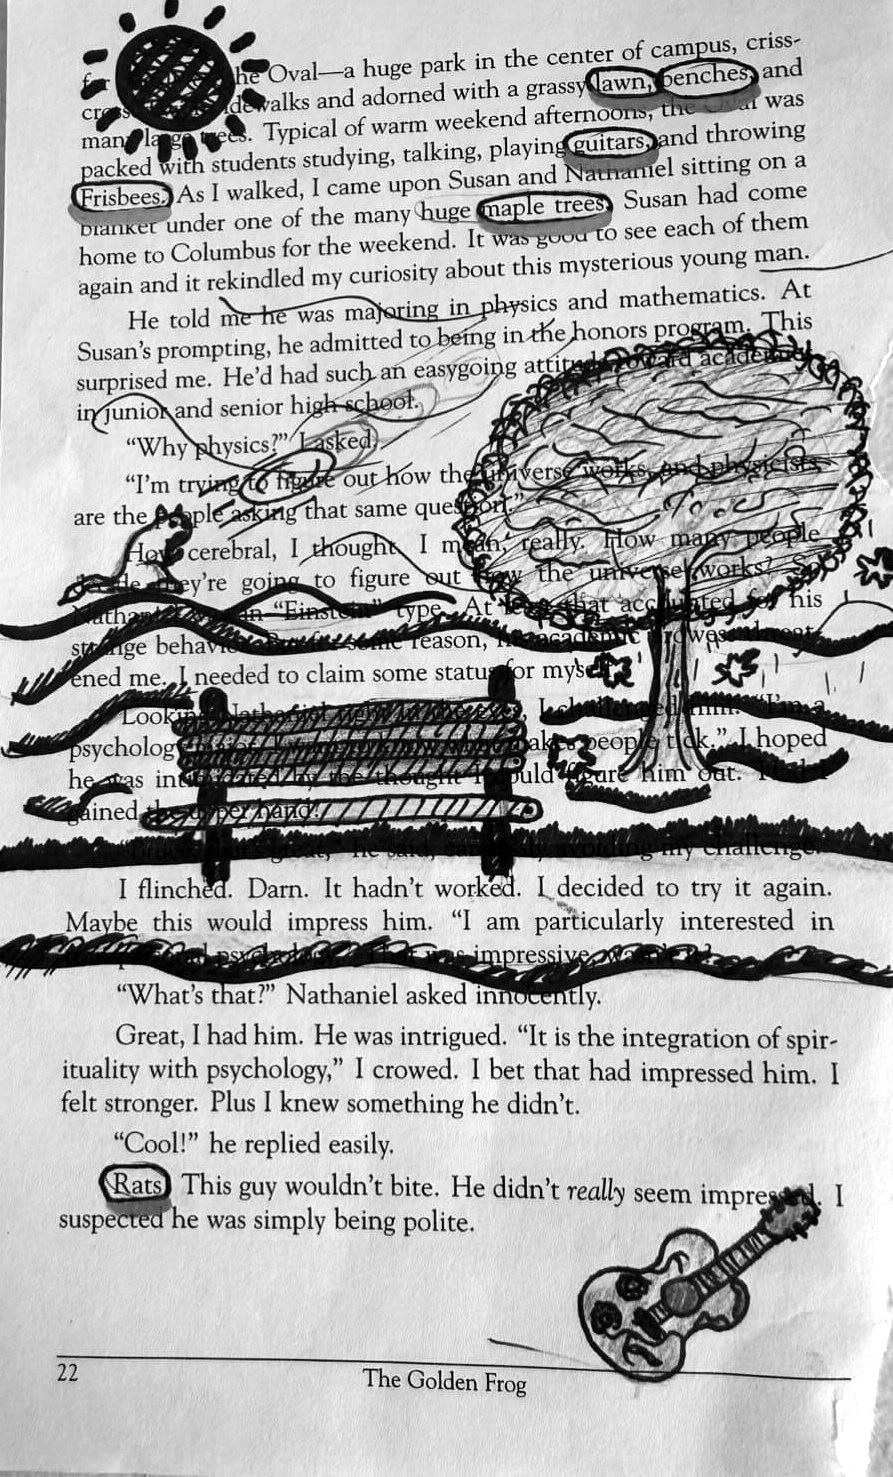 the Oval—a huge park in the center of campus, criss-
walks and adorned with a grassy lawn, benches, and
many large trees. Typical of warm weekend afternoons, the Oval was
packed with students studying, talking, playing guitars, and throwing
Frisbees. As I walked, I came upon Susan and Nathaniel sitting on a
blanket under one of the many huge maple trees. Susan had come
home to Columbus for the weekend. It was good to see each of them
again and it rekindled my curiosity about this mysterious young man.
He told me he was majoring in physics and mathematics. At
Susan's prompting, he admitted to being in the honors program. This
surprised me. He'd had such an easygoing attitude toward academics
in junior and senior high school.
“Why physics?” I asked.
“I'm trying to figure out how the universe works, and physicists
are the people asking that same question.”
How cerebral, I thought. I mean, really. How many people
they're going to figure out how the universe works? So
Nathaniel an “Einstein” type. At least that accounted for his
strange behavior. some reason, his academic prowess
ened me. I needed to claim some status for myself.
Looking Nathaniel I challenged him. “I'm a
psychology makes people tick.” I hoped
he was intimidated by the thought I could figure him out.
gained the upper hand.
great,” he said, avoiding my challenge.
I flinched. Darn. It hadn't worked. I decided to try it again.
Maybe this would impress him. “I am particularly interested in
psychology. was impressive, wasn't it?
“What's that?” Nathaniel asked innocently.
Great, I had him. He was intrigued. “It is the integration of spir-
ituality with psychology,” I crowed. I bet that had impressed him. I
felt stronger. Plus I knew something he didn't.
“Cool!” he replied easily.
Rats. This guy wouldn't bite. He didn't really seem impressed. I
suspected he was simply being polite.
22
The Golden Frog